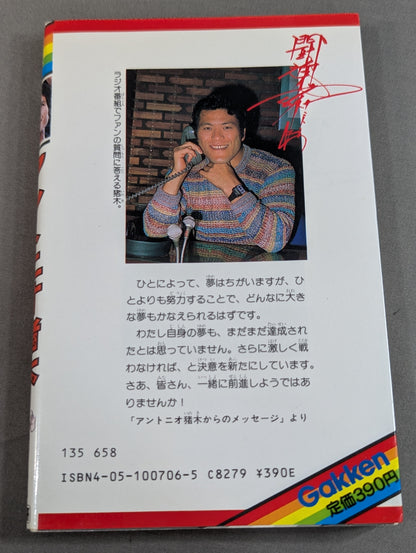 闘魂
ラジオ番組でファンの質問に答える猪木。
ひとによって、夢はちがいますが、ひ
とよりも努力することで、どんなに大き
な夢もかなえられるはずです。
わたし自身の夢も、まだまだ達成され
たとは思っていません。さらに激しく戦
わなければ、と決意を新たにしています。
さあ、皆さん、一緒に前進しようではあ
りませんか！
「アントニオ猪木からのメッセージ」より
135 658
ISBN4-05-100706-5 C8279 ¥390E
Gakken
定価390円